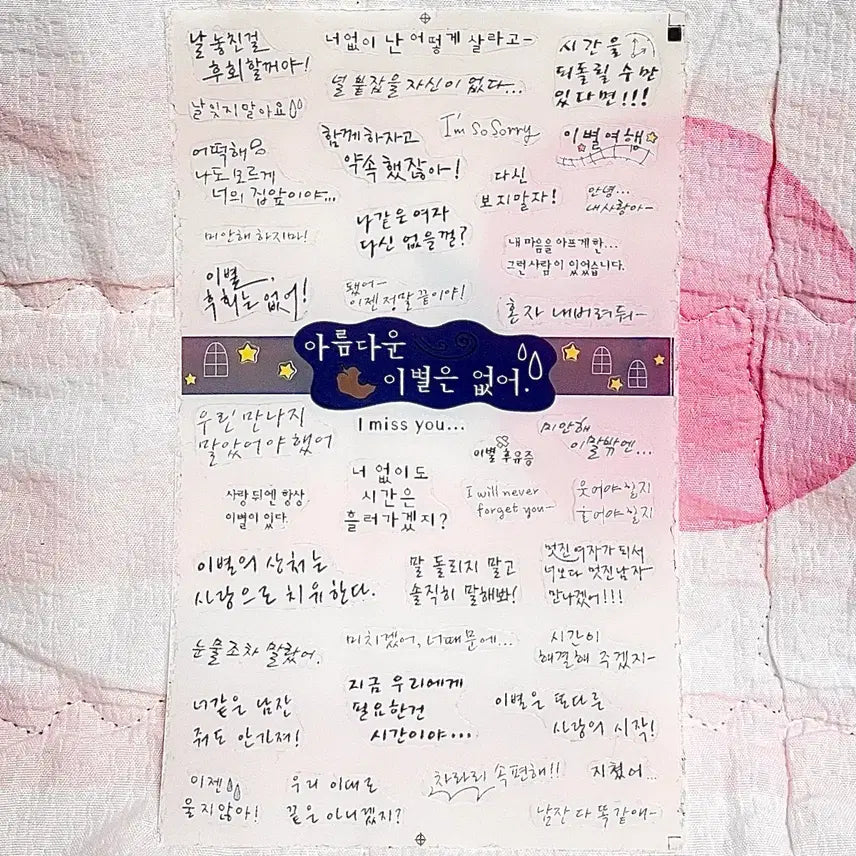 날 놓친걸
후회할꺼야!
너없이 난 어떻게 살라고~
시간을
되돌릴 수만
있다면!!!
널 붙잡을 자신이 없다...
날 잊지말아요
함께 하자고
약속했잖아!
I'm So Sorry
이별여행
어떡해
나도모르게
너의 집앞이야...
다신
보지말자!
안녕...
내사랑아~
미안해 하지마!
나같은 여자
다신 없을껄?
내 마음을 아프게 한...
그런 사람이 있었습니다.
이별,
후회는 없어!
됐어~
이젠 정말 끝이야!
혼자 내버려둬~
아름다운
이별은 없어.
우린 만나지
말았어야 했어
I miss you...
이별 후유증
미안해
이말밖엔...
사랑 뒤엔 항상
이별이 있다.
너 없이도
시간은
흘러가겠지?
I will never
forget you~
웃어야 할지
울어야 할지
이별의 상처는
사랑으로 치유한다.
말 돌리지 말고
솔직히 말해봐!
멋진여자가 되서
너보다 멋진남자
만나겠어!!!
눈물조차 말랐어.
미치겠어, 너때문에...
시간이
해결해 주겠지~
너같은 남잔
줘도 안가져!
지금 우리에게
필요한건
시간이야...
이별은 또다른
사랑의 시작!
이젠
울지않아!
우리 이대로
끝은 아니겠지?
차라리 속편해!!
지쳤어...
남잔 다 똑같애~